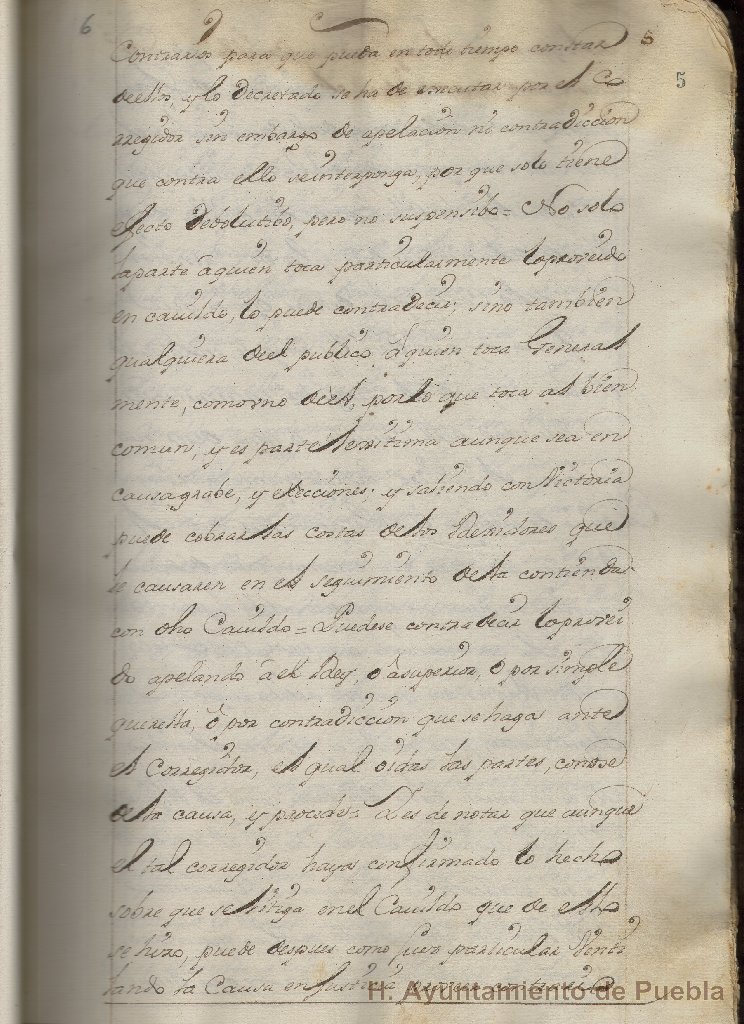 6
5
5
Contrario para que pueda en todo tiempo constar
de ello, y lo decretado se ha de executar por el Co
rregidor sin embargo de apelacion ni contradiccion
que contra ello se interponga, por que solo tiene
efecto debolutibo, pero no suspensibo = No solo
la parte â quien toca particularmente lo proveido
en cavildo, lo puede contradecir; sino tambien
qualquiera del publico â quien toca General
mente, como vno de el, por lo que toca al bien
comun, y es parte lexitima aunque sea en
causa grabe, y elecciones; y saliendo con Victoria
puede cobrar las costas de los Rexidores que
le causaren en el seguimiento de la contienda
con dho Cavildo = Puedese contradecir lo provei
do apelando â el Rey, ô â superior, ô por simple
querella, ô por contradiccion que se haga ante
el Corregidor, el qual oidas las partes, conose
de la causa, y procede = Y es de notar que aunque
el tal corregidor haya confirmado lo hecho
sobre que se litiga en el Cavildo que de ello
se hizo, puede despues como juez particular Venti
lando la Causa en Justicia proveer contrario
H. Ayuntamiento de Puebla